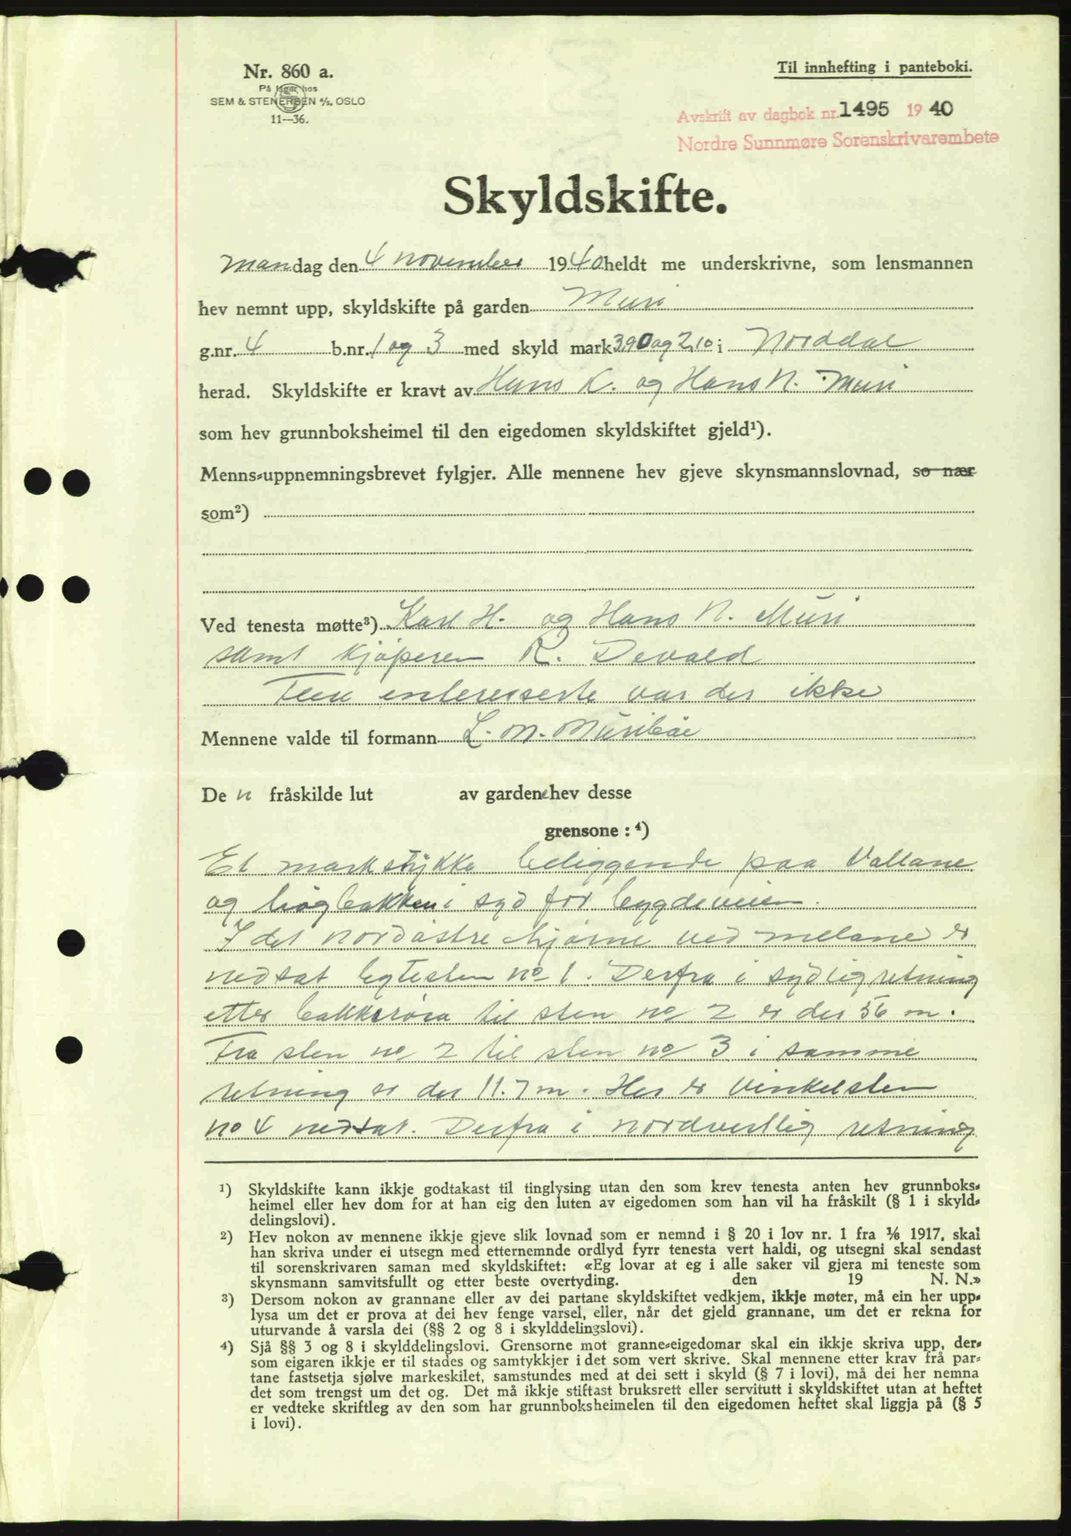 Nr. 860 a.
På lager hos
SEM & STENERSEN A/S, OSLO
11—36.
Til innhefting i panteboki.
Avskrift av dagbok nr. 1495 19 40
Nordre Sunnmøre Sorenskrivarembete
Skyldskifte.
Mandag den 4 november 1940 heldt me underskrivne, som lensmannen
hev nemnt upp, skyldskifte på garden Muri
g.nr. 4 b.nr. 1 og 3 med skyld mark 3,90 og 2,10 i Norddal
herad. Skyldskifte er kravt av Hans K. og Hans N. Muri
som hev grunnboksheimel til den eigedomen skyldskiftet gjeld¹).
Menns-uppnemningsbrevet fylgjer. Alle mennene hev gjeve skynsmannslovnad, so nær
som²)
Ved tenesta møtte³) Karl H. og Hans N. Muri
samt kjøperen R. Devold
Flere interesserte var der ikke
Mennene valde til formann L. M. Muribøe
De n fråskilde lut av garden hev desse
grensone : ⁴)
Et markstykke beliggende paa Vallane
og høgbakken i syd for bygdeveien.
I det nordøstre hjørne ved melane er
nedsat bytesten no 1. Derfra i sydlig retning
etter bakkerøsa til sten no 2 er der 56 m.
Fra sten no 2 til sten no 3 i samme
retning er der 11.7 m. Her er vinkelsten
no 4 nedsat. Derfra i nordvestlig retning
¹) Skyldskifte kann ikkje godtakast til tinglysing utan den som krev tenesta anten hev grunnboks-
heimel eller hev dom for at han eig den luten av eigedomen som han vil ha fråskilt (§ 1 i skyld-
delingslovi).
²) Hev nokon av mennene ikkje gjeve slik lovnad som er nemnd i § 20 i lov nr. 1 fra 1/6 1917, skal
han skriva under ei utsegn med etternemnde ordlyd fyrr tenesta vert haldi, og utsegni skal sendast
til sorenskrivaren saman med skyldskiftet: «Eg lovar at eg i alle saker vil gjera mi teneste som
skynsmann samvitsfullt og etter beste overtyding. den 19 N. N.»
³) Dersom nokon av grannane eller av dei partane skyldskiftet vedkjem, ikkje møter, må ein her upp-
lysa um det er prova at dei hev fenge varsel, eller, når det gjeld grannane, um det er rekna for
uturvande å varsla dei (§§ 2 og 8 i skylddelingslovi).
⁴) Sjå §§ 3 og 8 i skylddelingslovi. Grensorne mot granne-eigedomar skal ein ikkje skriva upp, der-
som eigaren ikkje er til stades og samtykkjer i det som vert skrive. Skal mennene etter krav frå par-
tane fastsetja sjølve markeskilet, samstundes med at dei sett i skyld (§ 7 i lovi), må dei her nemna
det som trengst um det og. Det må ikkje stiftast bruksrett eller servitutt i skyldskiftet utan at heftet
er vedteke skriftleg av den som har grunnboksheimelen til den eigedomen heftet skal liggja på (§ 5
i lovi).